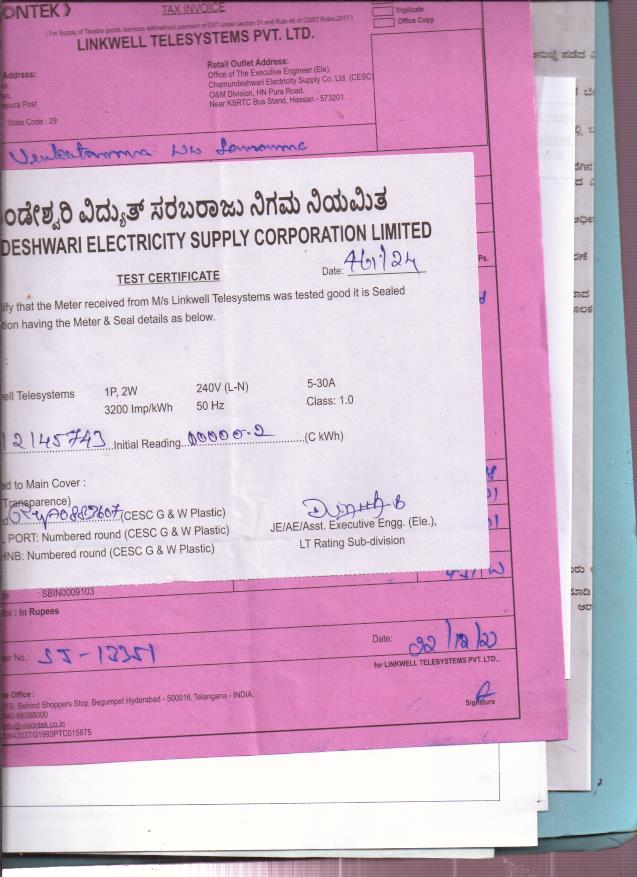 ONTEK
TAX INVOICE
( For Supply of Taxable goods /services with/without payment of GST under section 31 and Rule 46 of CGST Rules,2017 )
LINKWELL TELESYSTEMS PVT. LTD.
Triplicate
Office Copy
Address:
Retail Outlet Address:
Office of The Executive Engineer (Ele),
Chamundeshwari Electricity Supply Co. Ltd. (CESC)
O&M Division, HN Pura Road,
Near KSRTC Bus Stand, Hassan - 573201.
apura Post,
State Code : 29
Venkatamma
ಂಡೇಶ್ವರಿ ವಿದ್ಯುತ್ ಸರಬರಾಜು ನಿಗಮ ನಿಯಮಿತ
DESHWARI ELECTRICITY SUPPLY CORPORATION LIMITED
TEST CERTIFICATE
Date: 4/1/24
Ps.
ify that the Meter received from M/s Linkwell Telesystems was tested good it is Sealed
tion having the Meter & Seal details as below.
ell Telesystems 1P, 2W 240V (L-N) 5-30A
3200 Imp/kWh 50 Hz Class: 1.0
12145743 Initial Reading 00000.2 (C kWh)
ed to Main Cover :
Transparence)
(CESC G & W Plastic)
PORT: Numbered round (CESC G & W Plastic)
HNB: Numbered round (CESC G & W Plastic)
JE/AE/Asst. Executive Engg. (Ele.),
LT Rating Sub-division
: SBIN0009103
: In Rupees
er No.: SJ-13351
Date: 22/12/23
for LINKWELL TELESYSTEMS PVT. LTD.,
Signature
e Office :
Behind Shoppers Stop, Begumpet Hyderabad - 500016, Telangana - INDIA.
040-66388000
info@visiontek.co.in
64203TG1993PTC015875